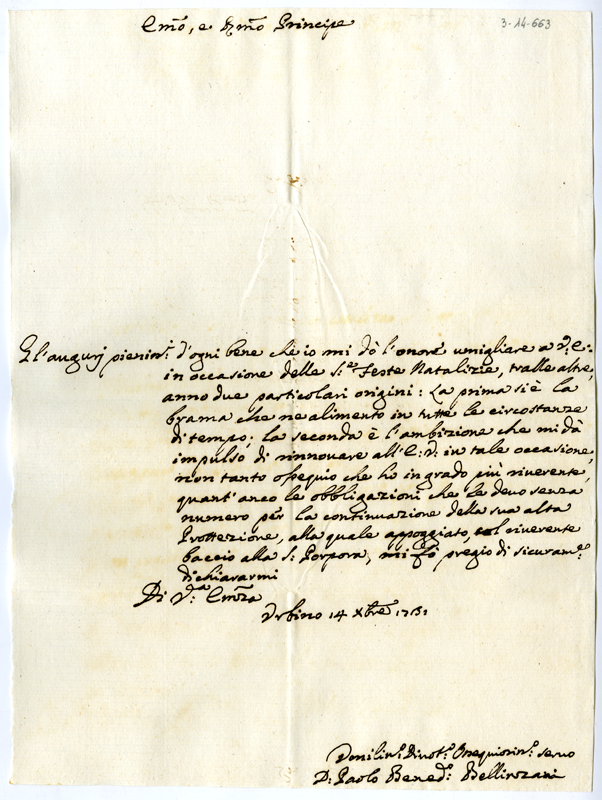 Em̃o, e Rm̃o Principe
3-14-663
Gl'augurj pieniss.i d'ogni bene che io mi dò l'onore umigliare a V.E:
in occasione delle S.te Feste Natalizie, tralle altre,
anno due particolari origini: La prima si è la
brama che ne alimento in tutte le circostanze
di tempo; la seconda è l'ambizione che mi dà
impulso di rinnovare all'E: V: in tale occasione,
non tanto ossequio che ho in grado più riverente,
quant'anco le obbligazioni che le devo senza
numero per la continuazione della sua alta
Protezzione, alla quale appoggiato, col riverente
baccio alla S: Porpora, mi fò pregio di sicuram.e
dichiararmi
Di V.a Em̃za
Urbino 14 Xbre 1731
Umiliss.o Divot.o Ossequiosiss.o servo
D: Paolo Bened.o Bellinzani